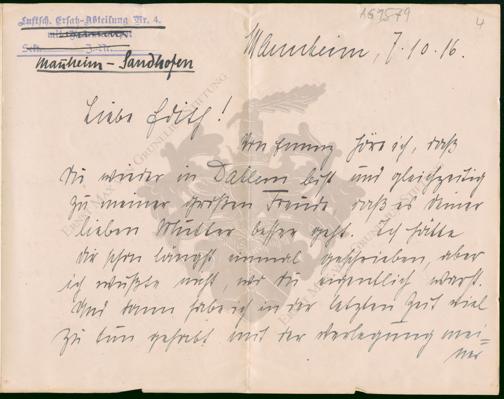 Luftsch. Ersatz-Abteilung Nr. 4.
Mannheim-Sandhofen
AG 9579
4
Mannheim, 7.10.16.
Liebe Edith!
Von Emmy höre ich, daß
Du wieder in Dahlem bist und gleichzeitig
zu meiner großen Freude, daß es Deiner
lieben Mutter besser geht. Ich hätte
Dir schon längst einmal geschrieben, aber
ich wußte nicht, wo Du eigentlich warst.
Und dann habe ich in der letzten Zeit viel
zu tun gehabt mit der Verlegung mei-
ner